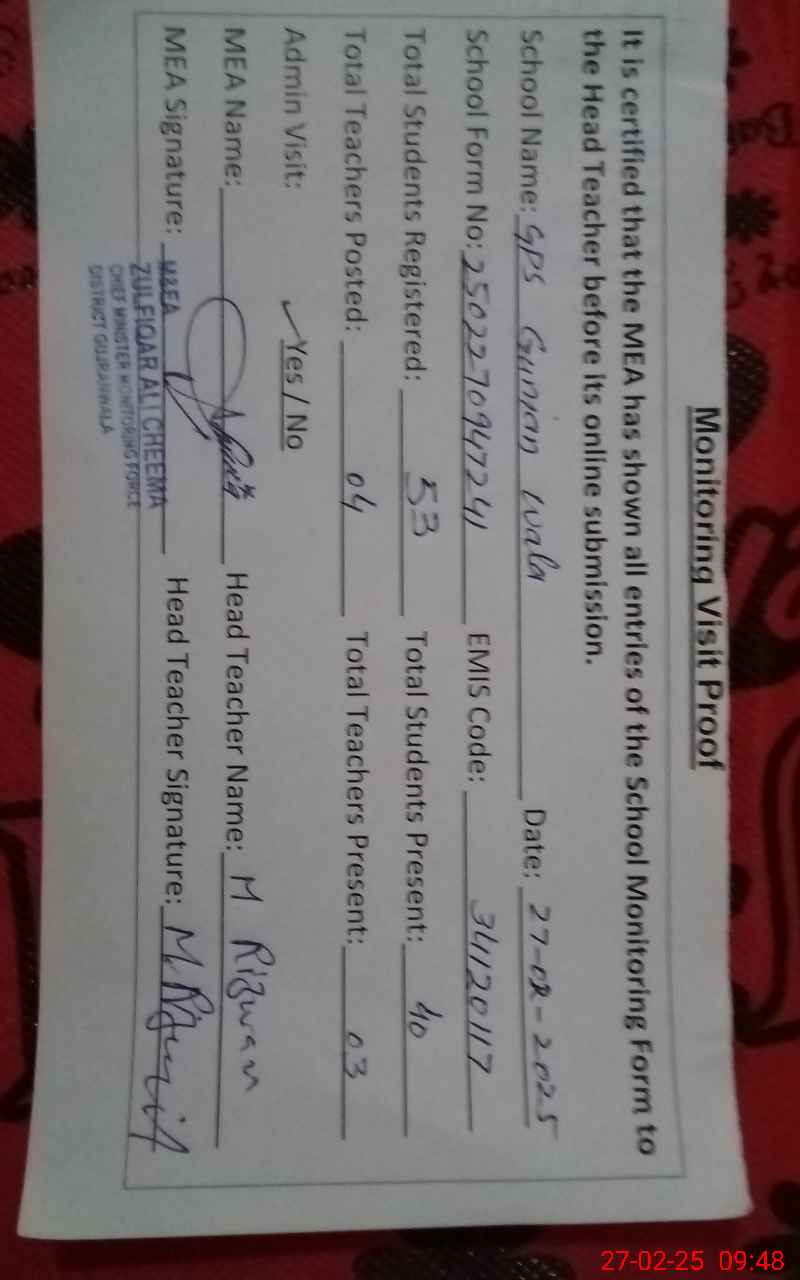 Monitoring Visit Proof
It is certified that the MEA has shown all entries of the School Monitoring Form to
the Head Teacher before its online submission.
School Name: GPS Gunian wala Date: 27-02-2025
School Form No: 25022770947241 EMIS Code: 34120117
Total Students Registered: 53 Total Students Present: 40
Total Teachers Posted: 04 Total Teachers Present: 03
Admin Visit: ✓Yes / No
MEA Name: Head Teacher Name: M Rizwan
MEA Signature: Head Teacher Signature: M. Rizwan
M&EA
ZULFIQAR ALI CHEEMA
CHIEF MINISTER MONITORING FORCE
DISTRICT GUJRANWALA
27-02-25 09:48